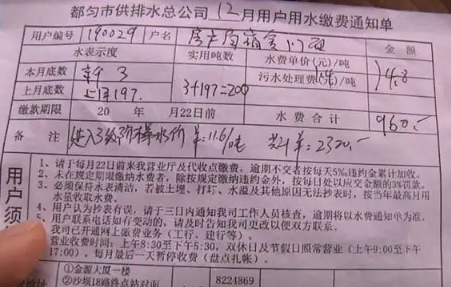 都匀市供排水总公司 12月用户用水缴费通知单
用户编号 190029 户名
水表示度 实用吨数 水费单价(元)/吨 金额
本月底数 3 3+197=200 污水处理费( )/吨 4.8
上月底数 197
缴款期限 20 年 月22日前 水费合计 960.-
备注 进入3级阶梯水价 11.6/吨 2320.-
用户须
1、请于每月22日前来我营业厅及代收点缴费,逾期不交者按每天5‰违约金累计加收。
2、未在规定期限缴纳水费者,除按规定缴纳违约金外,每日处以应交金额的3%罚款。
3、必须保持水表清洁,若被土埋、打坛、水溢及其他原因无法抄表时,按当年最高月用
水量收取水费。
4、用户认为抄表有误,请于三日内通知我司工作人员核查,逾期将以水费通知单为准。
5、用户联系电话如有变动的,请及时告知我司变更以便双方联系。
我司已开通网上缴费业务(工行、建行等)
营业收费时间:上午8:30至下午5:30,双休日及节假日照常营业(上午9:00至下午
17:00),每月最后一天暂停收费(盘点扎帐)。
①金源大厦一楼
②沙坝18路终点站对面 8224869